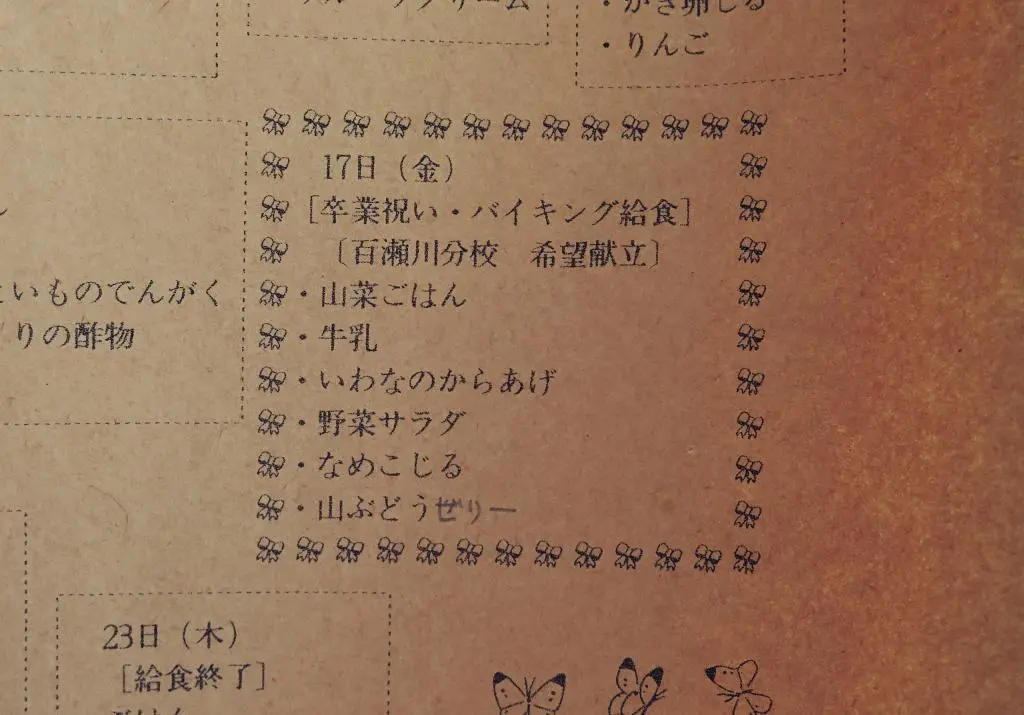 ・りんご
17日（金）
［卒業祝い・バイキング給食］
〔百瀬川分校　希望献立〕
・山菜ごはん
・牛乳
・いわなのからあげ
・野菜サラダ
・なめこじる
・山ぶどうぜりー
いものでんがく
りの酢物
23日（木）
［給食終了］